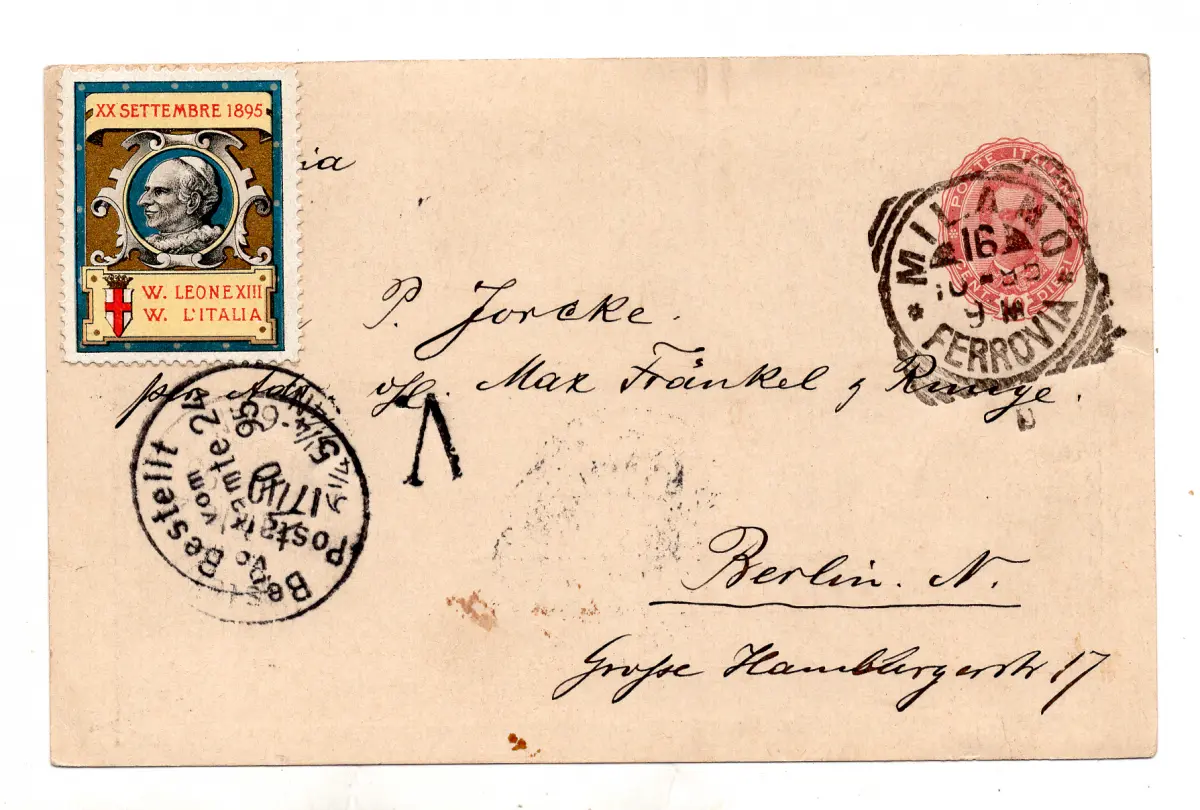 XX SETTEMBRE 1895
W. LEONE XIII
W. L'ITALIA
POSTE ITALIANE
CENT. DIECI
MILANO
16
10-95
9 M
FERROVIA
P. Jorcke.
per Adr. Max Fränkel & Runge.
V
Bestellt
vom
Postamte 24
17/10
95
5¼-6¼ N
Berlin. N.
Grosse Hamburgerstr 17